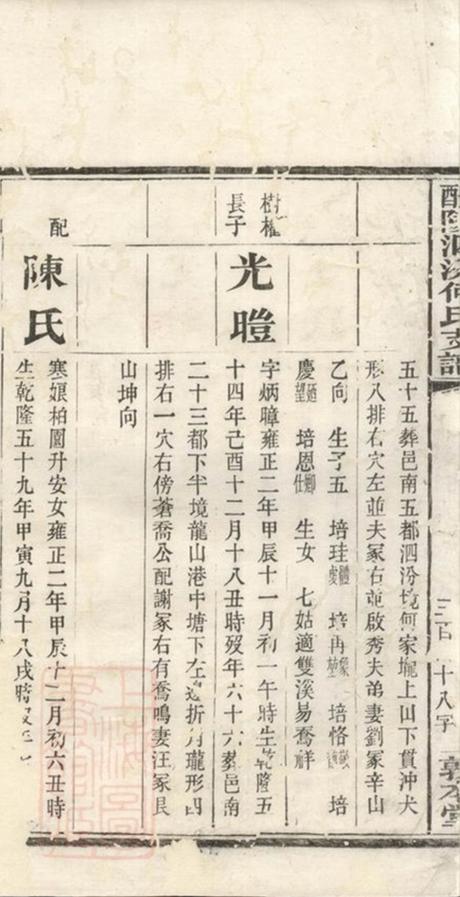 醴陵泗汾何氏支譜
三百 十八字 敦本堂
五十五葬邑南五都泗汾境何家壠上山下貫沖犬
形八排右穴左並夫冢右並啟秀夫弟妻劉冢辛山
乙向 生子五 培珪 培再 培恪 培
慶 培恩 生女 七姑適雙溪易喬祥
樹權
長子
光暟
字炳暲雍正二年甲辰十一月初一午時生乾隆五
十四年己酉十二月十八丑時歿年六十六葬邑南
二十三都下半境龍山港中塘下左邊折月壠形四
排右一穴右傍蒼喬公配謝冢右有喬鳴妻汪冢艮
山坤向
配
陳氏
寒娘柏園升安女雍正二年甲辰十二月初六丑時
生乾隆五十九年甲寅九月十八戌時歿